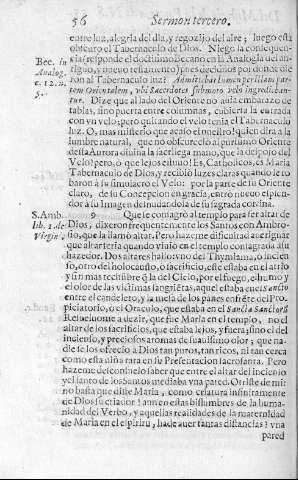 56 Sermon tercero.
entre luz, alegria del dia, y regozijo del aire; luego està
obscuro el Tabernaculo de Dios. Niego la consequencia
(responde el doctissimo Becano en la Analogia del antiguo,
y nuevo testamento) pues dezidnos por donde dieron
al Tabernaculo luz? Admittebat lumen per illam partem
Orientalem, vbi Sacerdotes submoto velo ingrediebantur.
Dize que al lado del Oriente no auia embarazo de
tablas, sino puerta entre columnas, cubierta la entrada
con vn velo; pero quitando el velo tenia el Tabernaculo
luz. O, mas misterio que acaso el nuestro! quien dirà a la
lumbre natural, que no obscurecio al purissimo Oriente
desta Aurora
Velo! pero, ò que lejos estuuo! Es, Catholicos, es Maria
Tabernaculo de Dios, y recibiò luzes claras quando le robaron
à su simulacro el Velo: por la parte de su Oriente
claro, de su Concepcion en gracia, entrò nuevo esplendor
à su Imagen desnudandola de su sagrada cortina.
9 Que se consagrò al templo para ser altar de
Dios, dixeron frequentemente los Santos con Ambrosio,
que la llamò altar. Pero hazeme dificultad aueriguar
que altar seria quando viuiò en el templo consagrada a su
hazedor. Dos altares hallo: vno del Thymiama, ò incienso,
otro del holocausto, ò sacrificio, este estaua en el atrio
y fin mas techumbre que la del Cielo, por el fuego, el humo y
el olor de las victimas sangrietas, aquel estaua en el Sancto
entre el candelero, y la mesa de los panes enfrète del Propiciatorio,
ò el Oraculo, que estaba en el Sancta Sanctorũ
Resueluome a dezir, que fue Maria en el templo, no el
altar de los sacrificios, que estaba lejos, y fuera; sino el del
incienso, y preciosos aromas de suauissimo olor; que nadie
se los ofreciò à Dios tan puros, tan ricos, ni tan cerca
como esta niña rara en su Presentacion sacrosanta. Pero
hazeme desconsuelo saber que entre el altar del incienso
y el santo de los Santos mediaba vna pared.
no basta que diste Maria, como criatura infinitamente
de Dios su criador? aun en estas vislumbres de la humanidad
del Verbo, y aquellas realidades de la maternidad
de Maria en el espiritu, hade auer tantas distancias? vna
pared
Bec. in
Analog.
c. 12. n.
5.
S. Amb.
lib. 2. de
Virgin.